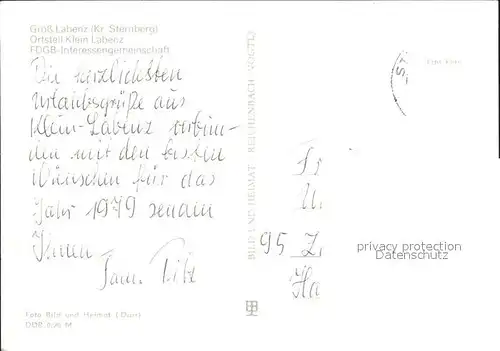 Groß Labenz (Kr. Sternberg)
Ortsteil Klein Labenz
FDGB-Interessengemeinschaft
Die herzlichsten
Urlaubsgrüße aus
Klein-Labenz verbin-
den mit den besten
Wünschen für das
Jahr 1979 senden
Ihnen
Fam.
BILD UND HEIMAT REICHENBACH (VOGTL)
95 Z
Ha
privacy protection
Datenschutz
Foto: Bild und Heimat (Darr)